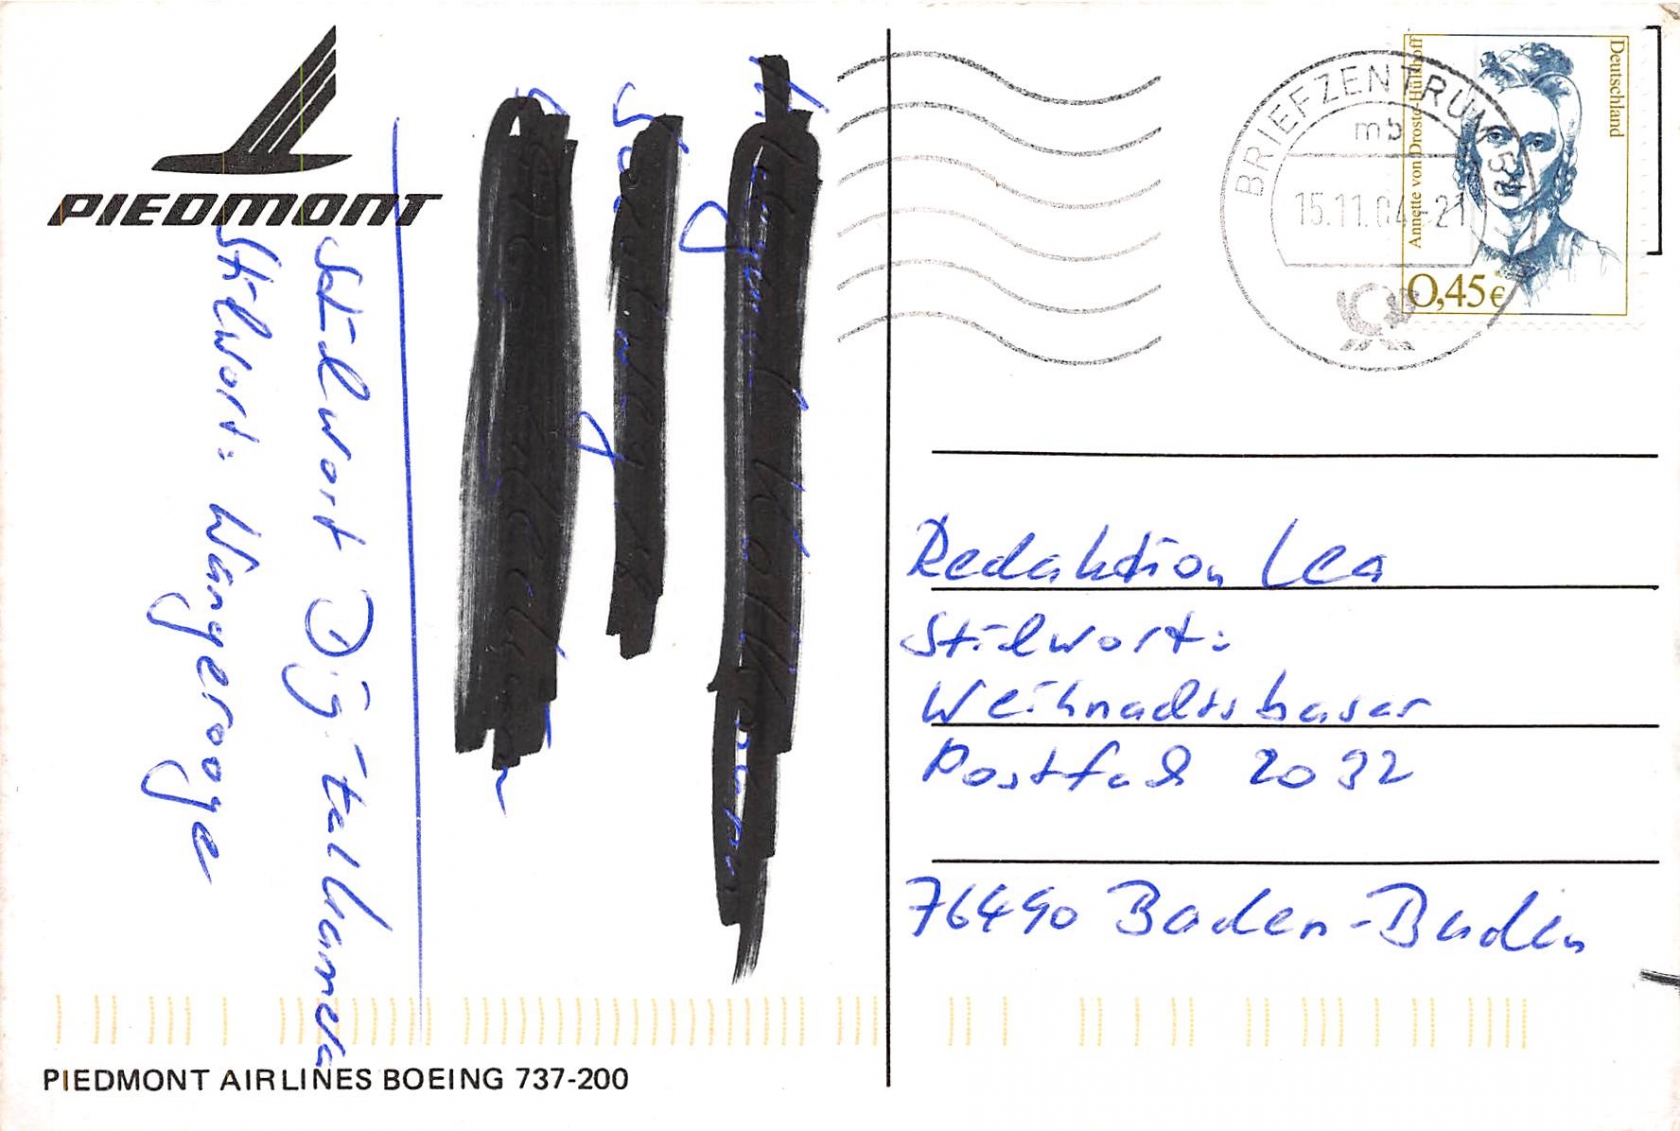 PIEDMONT
Stilwort Digitalkamera
Stilwort: Wangerooge
PIEDMONT AIRLINES BOEING 737-200
Deutschland
Annette von Droste-Hülshoff
0,45€
BRIEFZENTRUM
mb
15.11.04-21
Redaktion Lea
Stilwort:
Weihnachtsbasar
Postfach 2032
76490 Baden-Baden